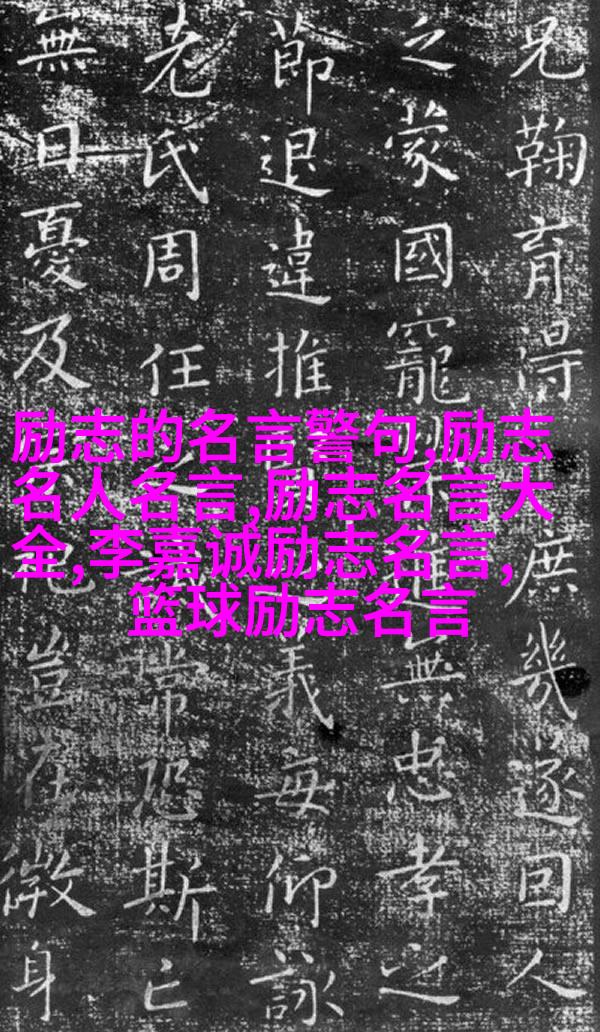 兄鞠育得庶幾遂回人
之蒙國寵進無忠孝之
節退違推義每仰詠
老氏周任常恐斯亡
無日憂及豈在微身
励志的名言警句,励志
名人名言,励志名言大
全,李嘉诚励志名言,
篮球励志名言